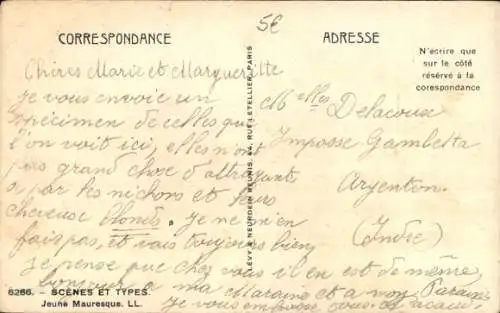 5€
CORRESPONDANCE
ADRESSE
N'écrire que
sur le côté
réservé à la
corespondance
Chères Marie et Marguerite
je vous envoie un
spécimen de celles que
l'on voit ici, elles n'ont
pas grand chose d'attrayant
à par les nichons et leurs
cheveux blonds. Je ne m'en
fais pas, et vais toujours bien
je pense que chez vous il en est de même,
bonjour a ma Maraine et a mon Parain
je vous embrasse
Melles Delacoux
Impasse Gambetta
Argenton
(Indre)
LÉVY & NEURDEIN RÉUNIS, 44, RUE LETELLIER, PARIS
6266. - SCÈNES ET TYPES.
Jeune Mauresque. LL.